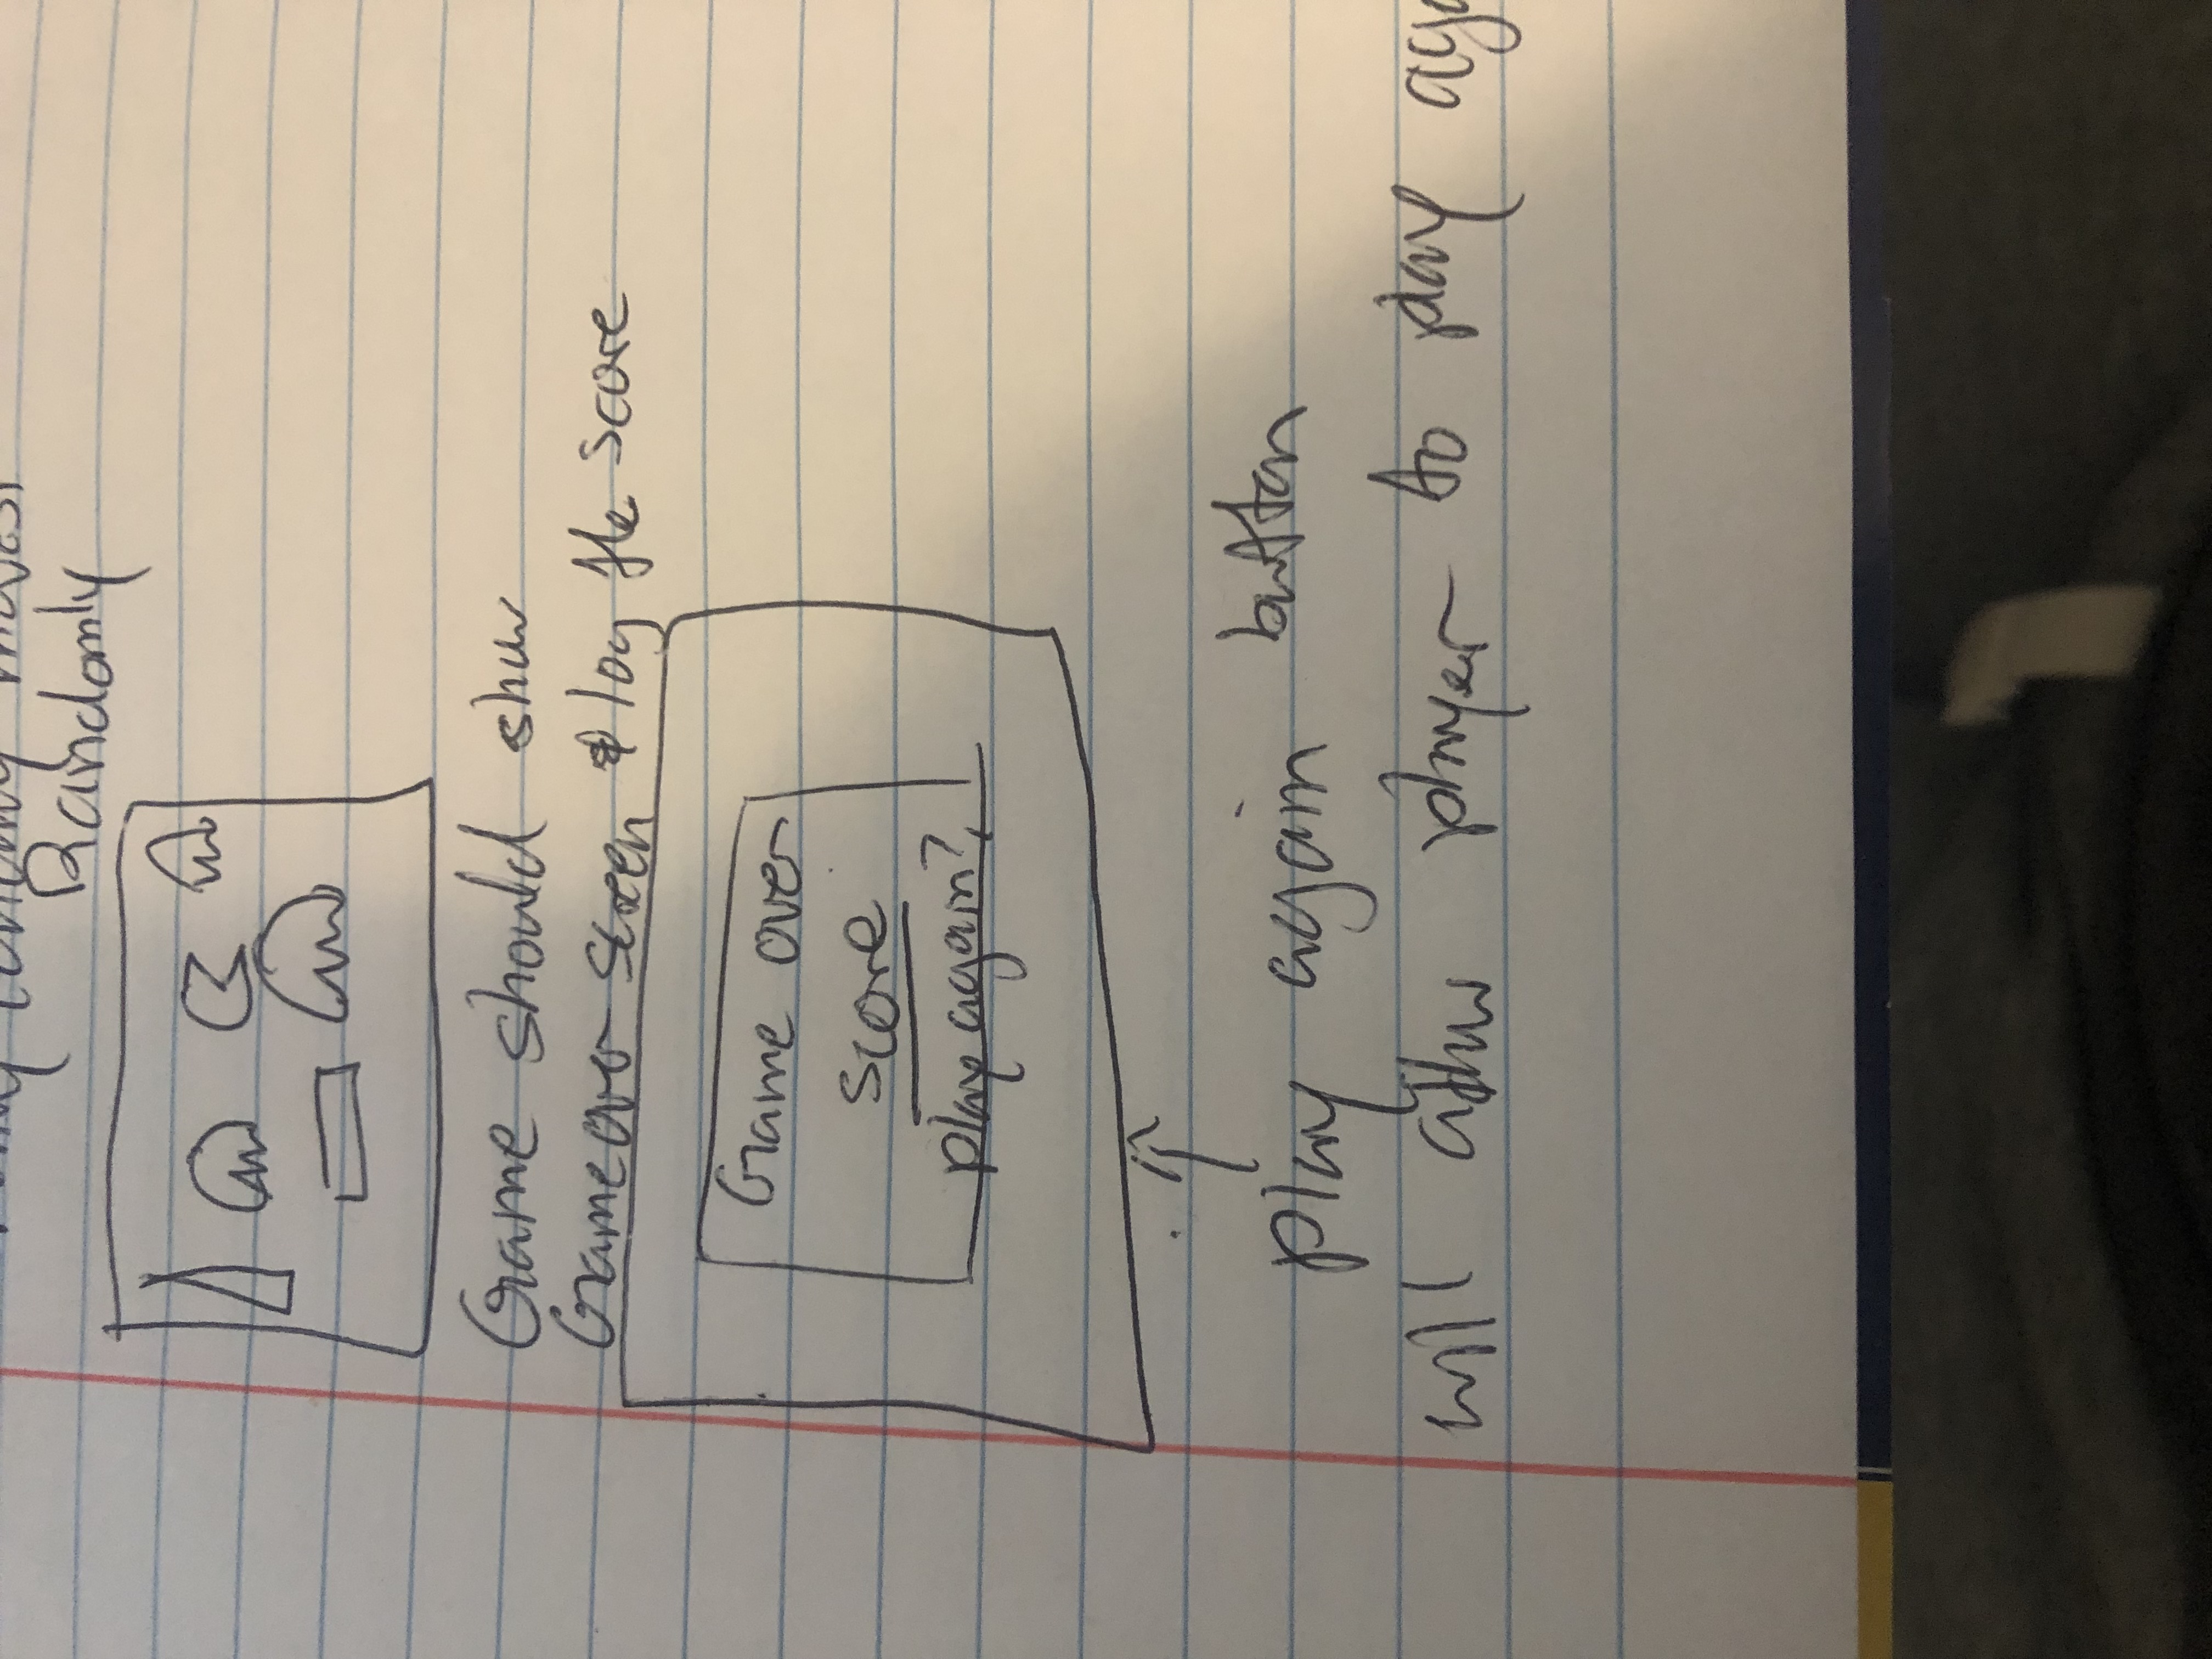 moves.
Randomly
Game should show
Game over screen & log the score
Game over
score
play again?
play again button
will allow player to play aga